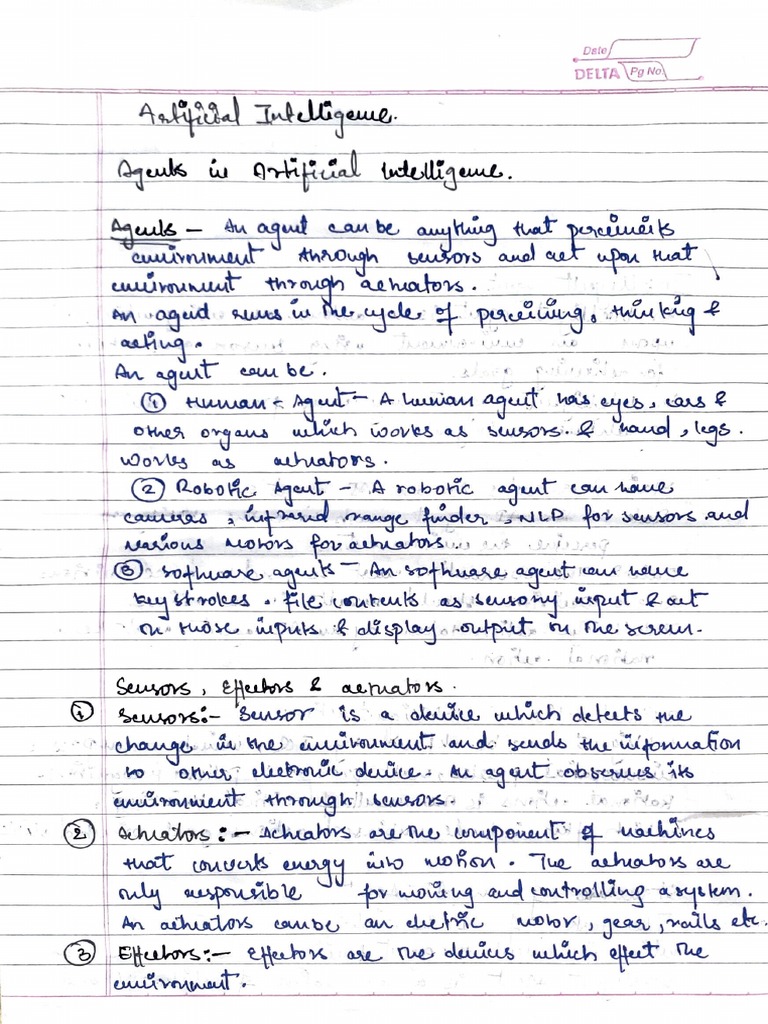 Date
DELTA Pg No.
Artificial Intelligence.
Agents in Artificial Intelligence.
Agents – An agent can be anything that perceiveits
environment through sensors and act upon that
environment through actuators.
An agent runs in the cycle of perceiving, thinking &
acting.
An agent can be.
① Human - Agent – A human agent has eyes, ears &
other organs which works as sensors. & hand, legs.
works as actuators.
② Robotic Agent – A robotic agent can have
cameras, infrared range finder, NLP for sensors and
various motors for actuators.
③ software agents – An software agent can have
key strokes. file contents as sensory input & act
on those inputs & display output on the screen.
Sensors, Effectors & actuators.
① Sensors:- Sensor is a device which detects the
change in the environment and sends the information
to other electronic device. An agent observes its
environment through sensors.
② Actuators:- Actuators are the component of machines
that converts energy into motion. The actuators are
only responsible for moving and controlling a system.
An actuators can be an electric motor, gear, rails etc.
③ Effectors:- Effectors are the devices which effect the
environment.